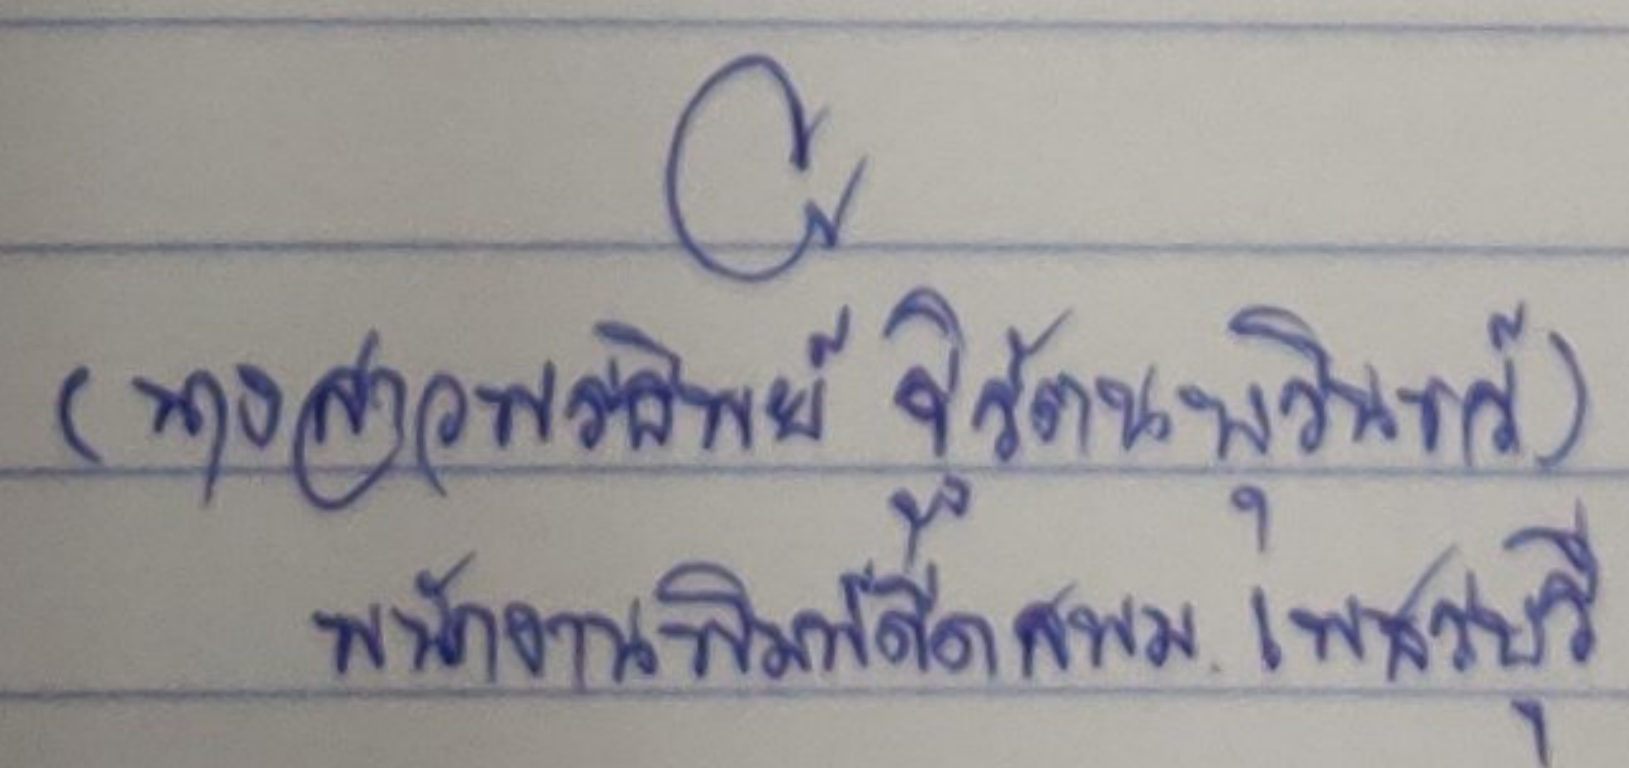 (นางสาวพรทิพย์ จิรัตนพุรินทร์)
พนักงานพิมพ์ดีด สพม. เพชรบุรี